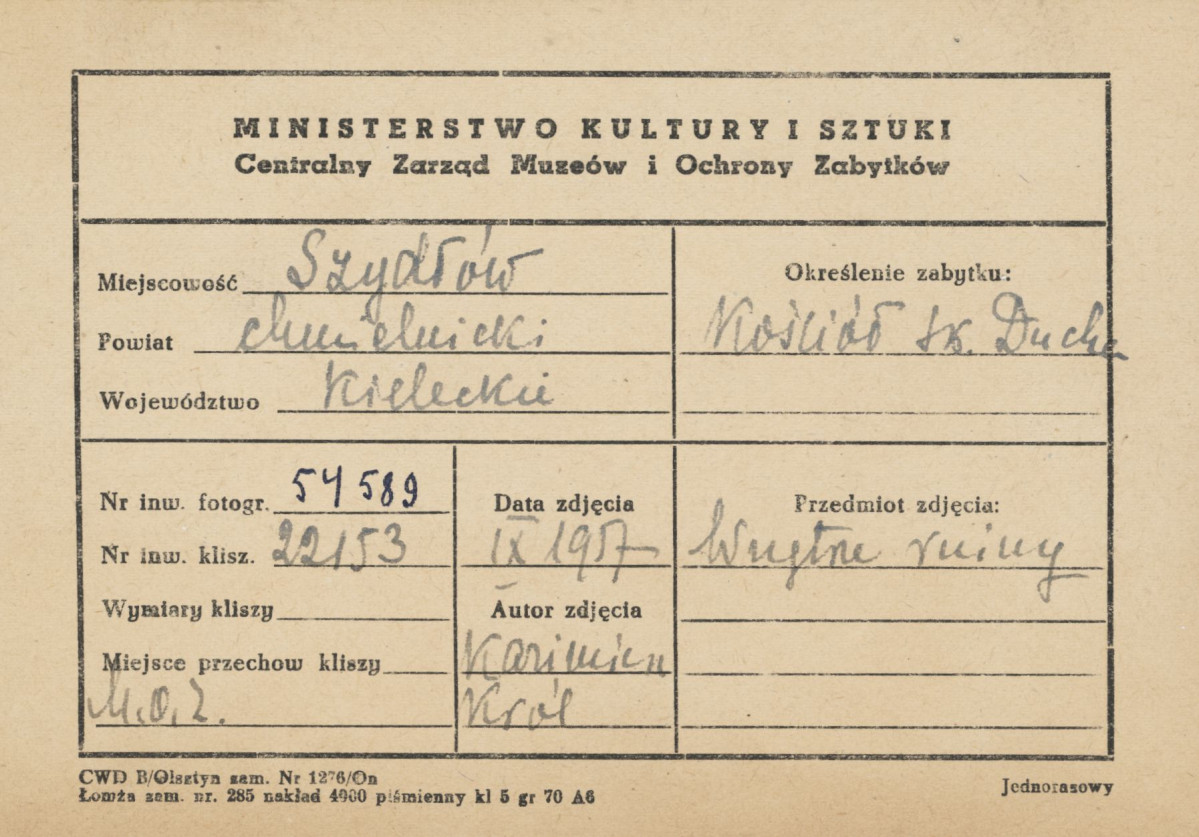 MINISTERSTWO KULTURY I SZTUKI
Centralny Zarząd Muzeów i Ochrony Zabytków
Miejscowość Szydłów
Powiat chmielnicki
Województwo Kieleckie
Określenie zabytku:
Kościół św. Ducha
Nr inw. fotogr. 54589
Nr inw. klisz. 22153
Wymiary kliszy
Miejsce przechow kliszy
M.O.Z.
Data zdjęcia
IX 1957
Autor zdjęcia
Kazimierz
Król
Przedmiot zdjęcia:
Wnętrze ruiny
CWD B/Olsztyn zam. Nr 1276/On
Łomża zam. nr. 285 nakład 4000 piśmienny kl 5 gr 70 A6
Jednorazowy